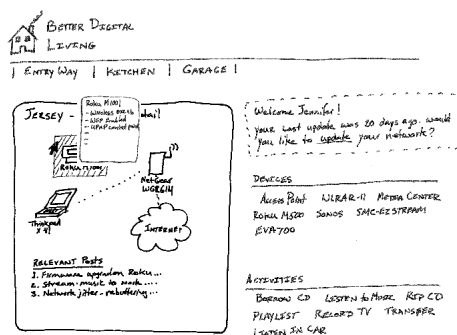 BETTER DIGITAL
LIVING
| ENTRY WAY | KITCHEN | GARAGE |
JERSEY -
Roku M1001
- Wireless 802.11b
- WEP Enabled
- UPnP control point
Roku M1000
NetGear
WGR614
Thinkpad
X41
INTERNET
RELEVANT POSTS
1. Firmware upgrade on Roku...
2. Stream music to work.....
3. Network jitter - rebuffering...
Welcome Jennifer!
your last update was 20 days ago. would
you like to update your network?
DEVICES
Access Point WLRAR-11 MEDIA CENTER
Roku M500 SONOS SMC-EZSTREAM
EVA700
ACTIVITIES
BORROW CD LISTEN to MUSIC RIP CD
PLAYLIST RECORD TV TRANSFER
LISTEN IN CAR